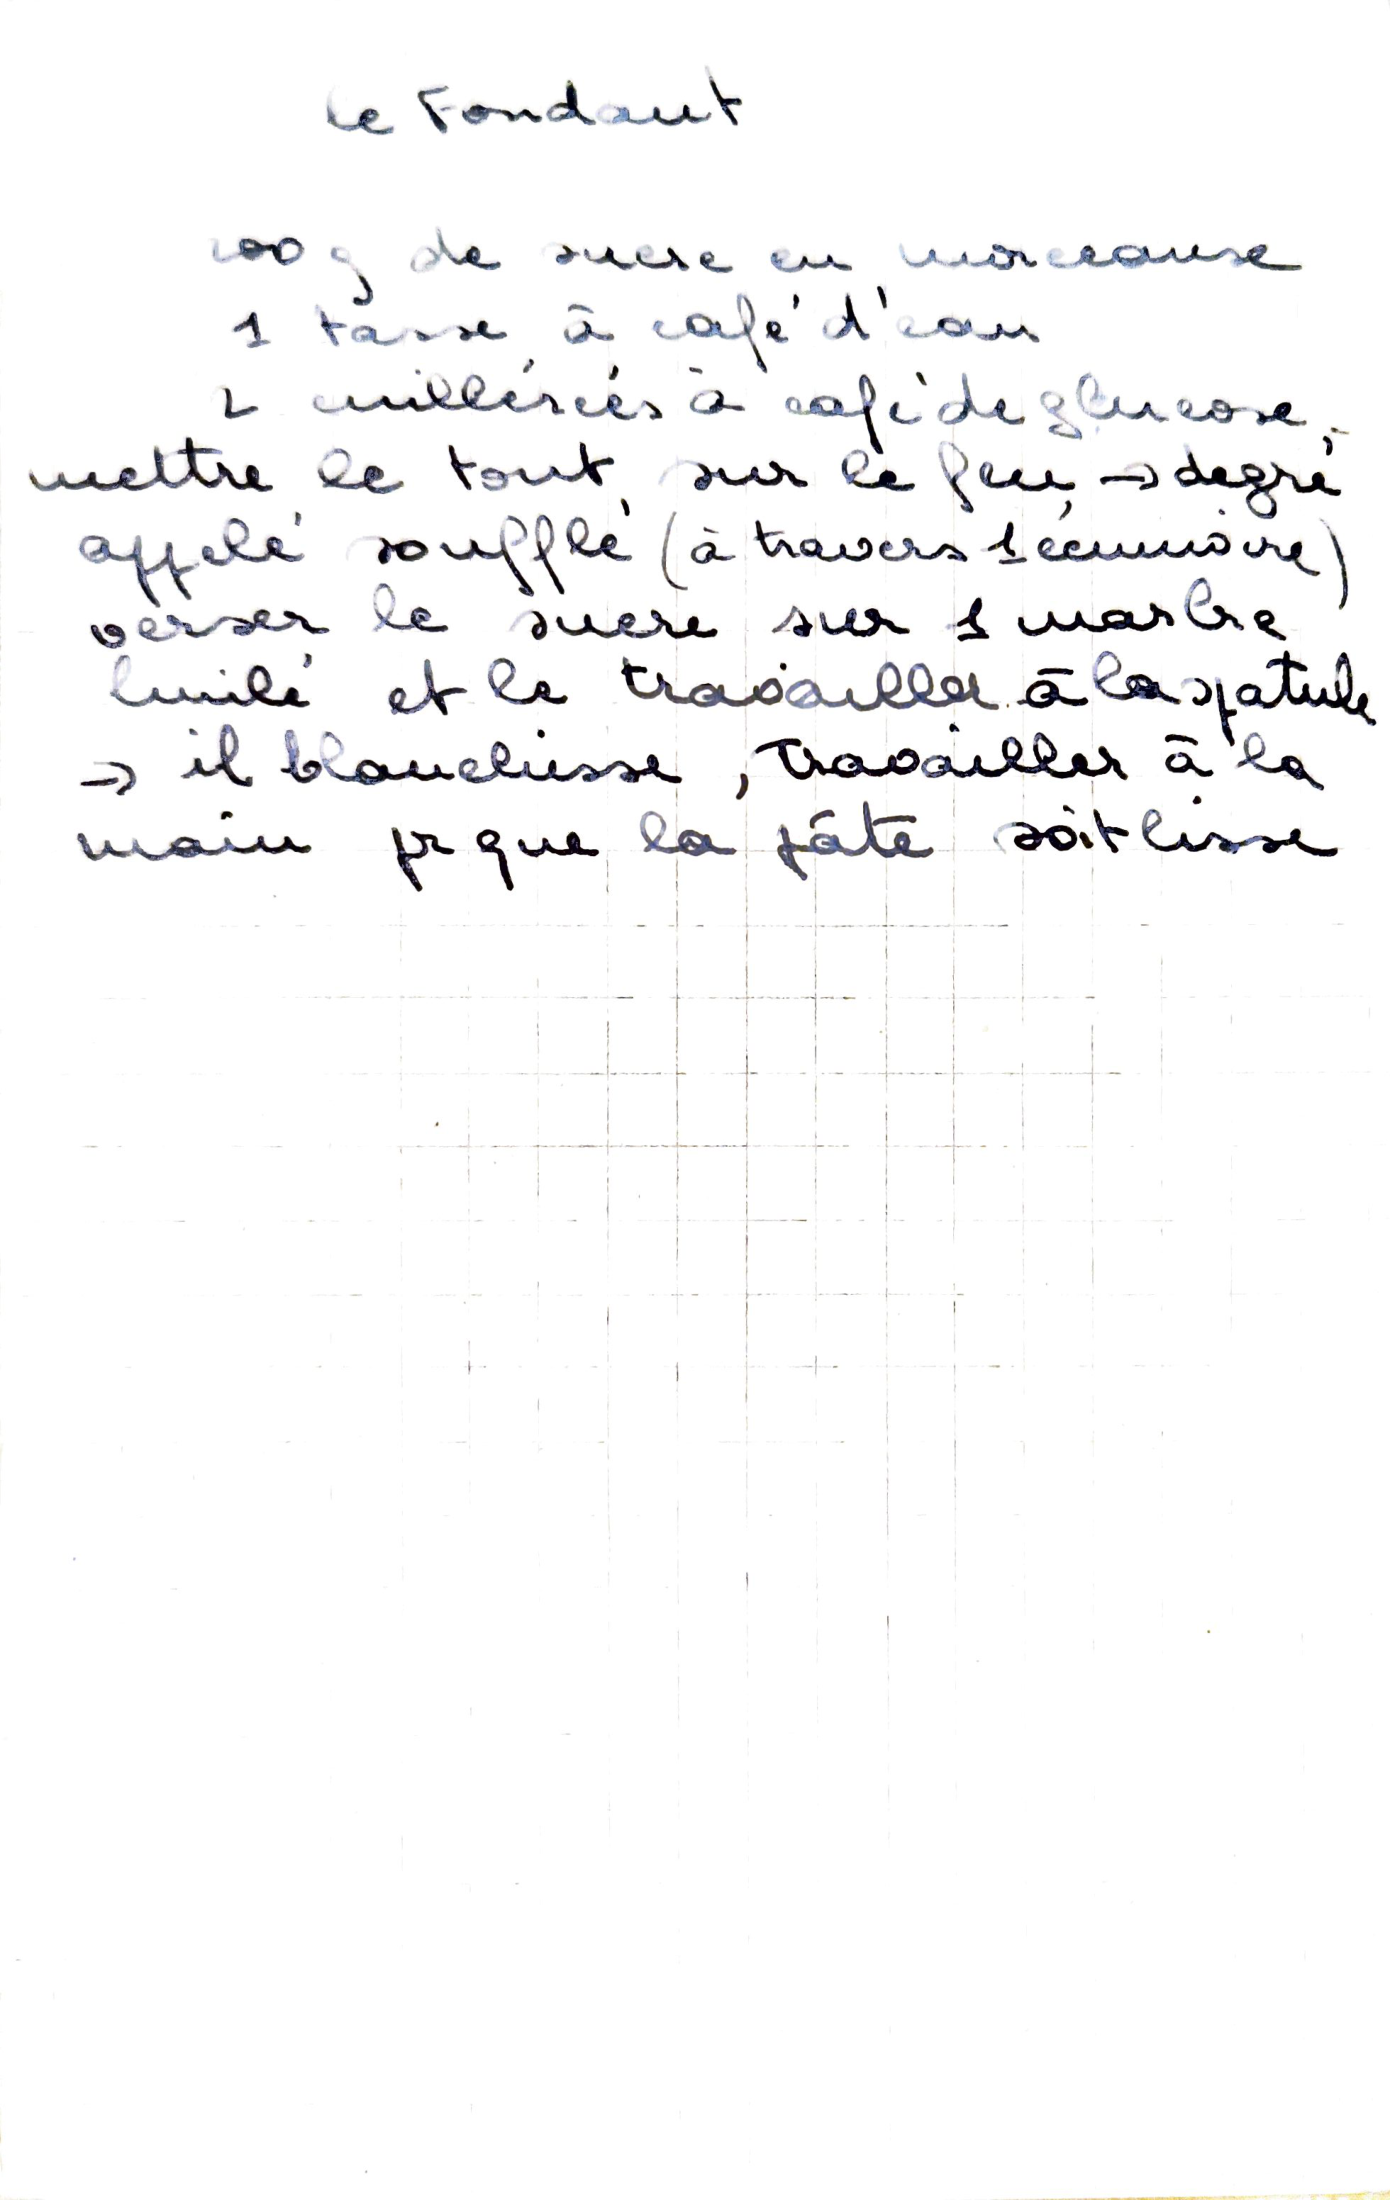 Le Fondant
200 g de sucre en morceaux
1 tasse à café d'eau
2 cuillérées à café de glucose,
mettre le tout sur le feu → degré
appelé soufflé (à travers 1 écumoire)
verser le sucre sur 1 marbre
huilé et le travailler à la spatule
→ il blanchisse, travailler à la
main pr que la pâte soit lisse